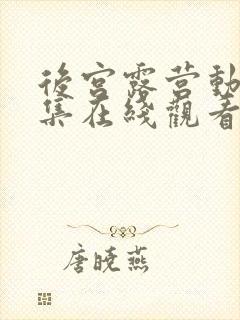 後宮露营動
集在綫觀看
唐曉燕